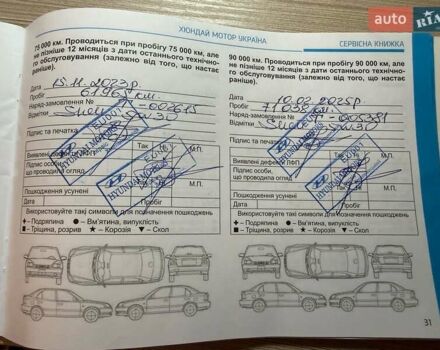 auto RIA
ХЮНДАЙ МОТОР УКРАЇНА
СЕРВІСНА КНИЖКА
75 000 км. Проводиться при пробігу 75 000 км, але
не пізніше 12 місяців з дати останнього технічно-
го обслуговування (залежно від того, що настає
раніше).
Дата 15.11.2023р
Пробіг км.
Наряд-замовлення № -002615
Відмітки Shell 5w30
Підпис та печатка
Так Ні
Виявлені дефекти ЛФП
Підпис особи,
що проводила огляд
М.П.
Пошкодження усунені
Дата
Пробіг
Використовуйте такі символи для позначення пошкоджень
+ - Подряпина ● – Вм'ятина, випуклість
■ - Тріщина, розрив ★ – Корозія ▼ – Скол
90 000 км. Проводиться при пробігу 90 000 км, але
не пізніше 12 місяців з дати останнього технічно-
го обслуговування (залежно від того, що настає
раніше).
Дата 10.02.2025р
Пробіг 71038 км.
Наряд-замовлення № -005381
Відмітки Shell 5w30
Підпис та печатка
Так Ні
Виявлені дефекти ЛФП
Підпис особи,
що проводила огляд
М.П.
Пошкодження усунені
Дата
Пробіг
Використовуйте такі символи для позначення пошкоджень
+ - Подряпина ● – Вм'ятина, випуклість
■ - Тріщина, розрив ★ – Корозія ▼ – Скол
31